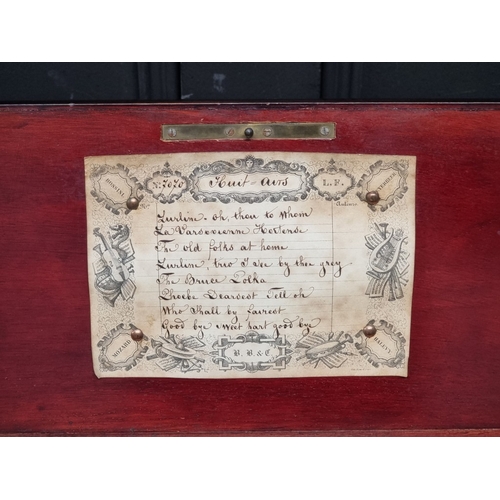 ROSSINI
N.º 7070
Huit Airs
L.F.
Auteurs
Lurline, oh, thou to Whom
La Varsovienne Hortense
The old folks at home
Lurline, trio I See by thee grey
The Bruce Polka
Phoebe Dearest Tell oh
Who Shall by fairest
Good bye Sweet hart good bye
MOZART
B. B. & C